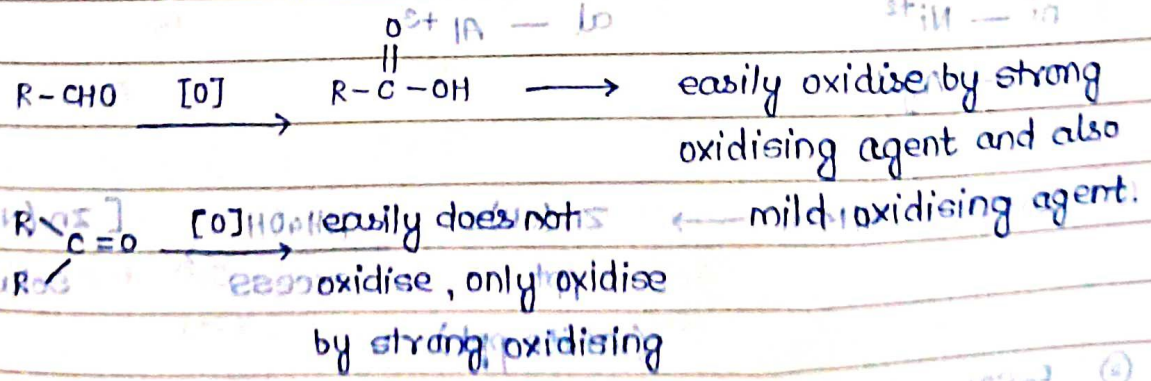 O
||
R-CHO [O] → R-C-OH → easily oxidise by strong
oxidising agent and also
mild oxidising agent.
R\
C=O [O] → easily does not
R/
oxidise, only oxidise
by strong oxidising